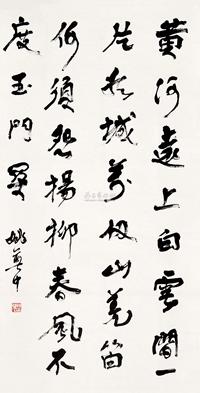 黄河遠上白雲間一
片孤城萬仞山羌笛
何須怨楊柳春風不
度玉門關
姚奠中